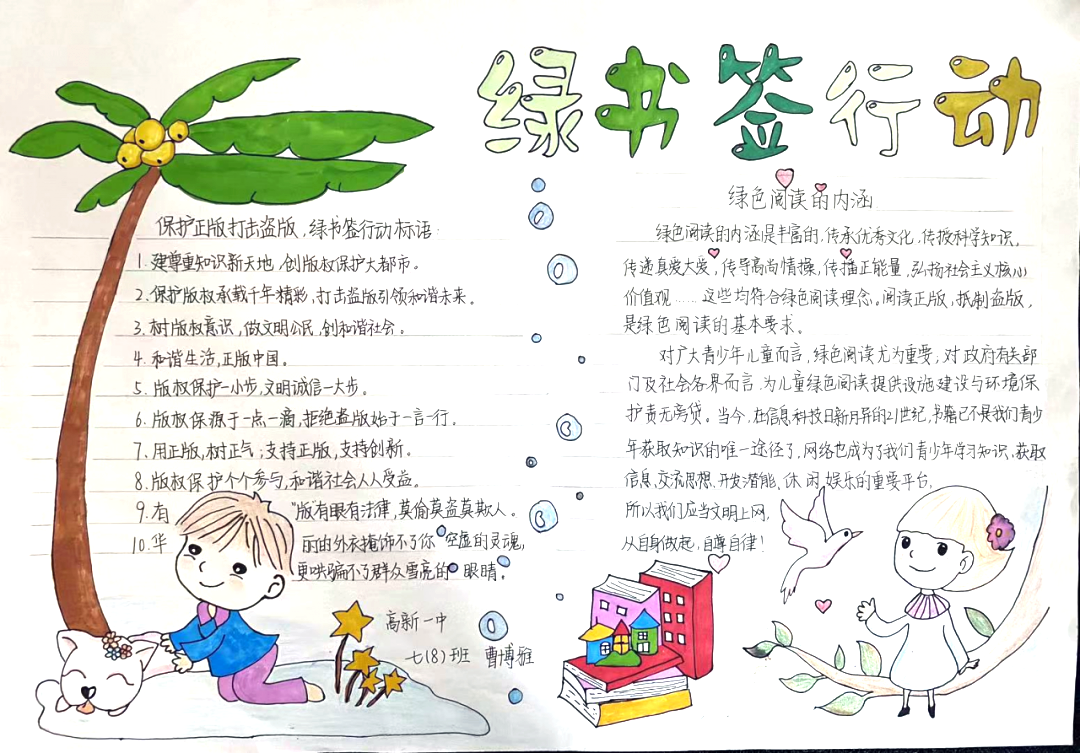 绿书签行动
保护正版打击盗版,绿书签行动标语:
1.建尊重知识新天地,创版权保护大都市。
2.保护版权承载千年精彩,打击盗版引领和谐未来。
3.树版权意识,做文明公民,创和谐社会。
4.和谐生活,正版中国。
5.版权保护一小步,文明诚信一大步。
6.版权保源于一点一滴,拒绝盗版始于一言一行。
7.用正版,树正气;支持正版,支持创新。
8.版权保护个个参与,和谐社会人人受益。
9.有 版有眼有法律,莫偷莫盗莫欺人。
10.华 丽的外衣掩饰不了你 空虚的灵魂,
更哄骗不了群众雪亮的 眼睛。
高新一中
七(8)班 曹博雅
绿色阅读的内涵
绿色阅读的内涵是丰富的,传承优秀文化,传授科学知识,
传递真爱大爱,传导高尚情操,传播正能量,弘扬社会主义核心
价值观……这些均符合绿色阅读理念。阅读正版,抵制盗版,
是绿色阅读的基本要求。
对广大青少年儿童而言,绿色阅读尤为重要,对政府有关部
门及社会各界而言,为儿童绿色阅读提供设施建设与环境保
护责无旁贷。当今,在信息科技日新月异的21世纪,书籍已不是我们青少
年获取知识的唯一途径了,网络也成为了我们青少年学习知识、获取
信息、交流思想、开发潜能、休闲娱乐的重要平台,
所以我们应当文明上网,
从自身做起,自尊自律!